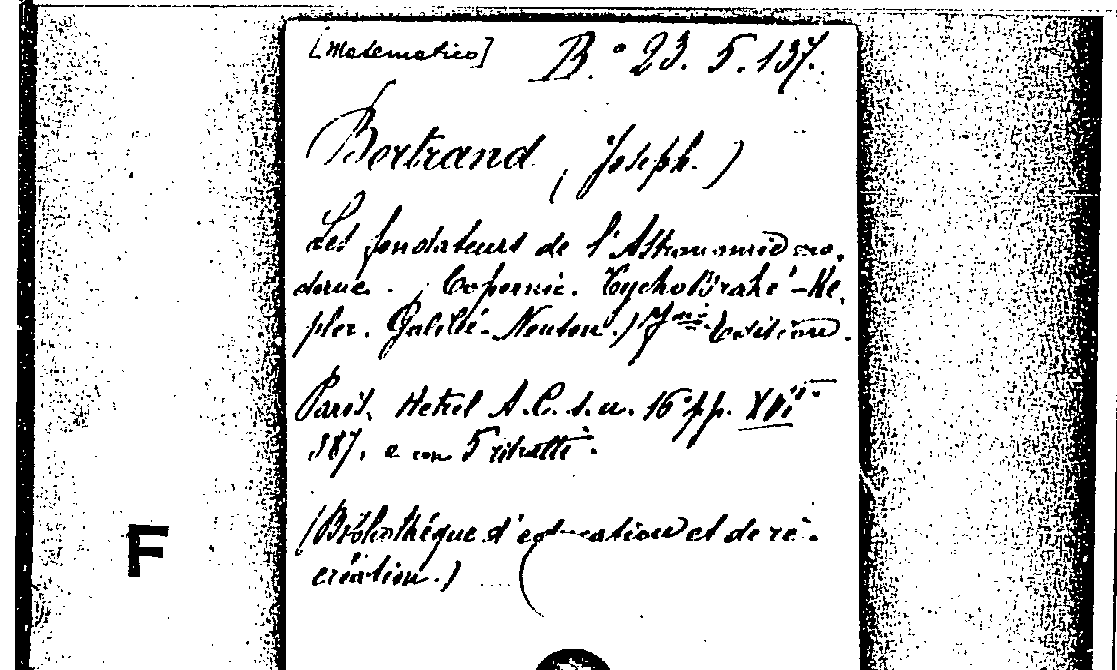 [Matematico] B.° 23. 5. 137.
Bertrand (Joseph.)
Les fondateurs de l'Astronomie mo-
derne. (Copernic. Tycho Brahé - Ke-
pler. Galilé - Newton.) 7me Edition.
Paris, Hetzel A. C. s. a. 16° pp. XVI
387. e con 5 ritratti.
(Bibliothéque d'education et de ré-
création.)
F